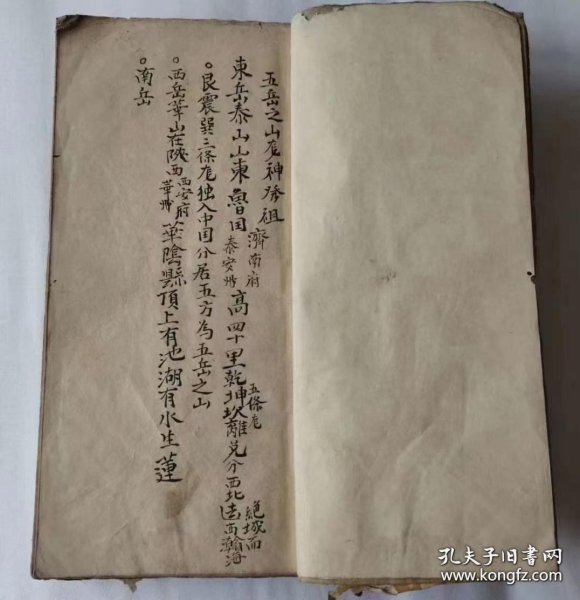 五岳之山龙神發祖
東岳泰山山東魯国濟南府泰安州高四十里乾坤坎離兑五條龙分西北絕域而去而瀚海
。艮震巽三條龙独入中国分居五方為五岳之山
。西岳華山在陝西西安府華州華陰縣頂上有池湖有水生蓮
。南岳
孔夫子旧书网